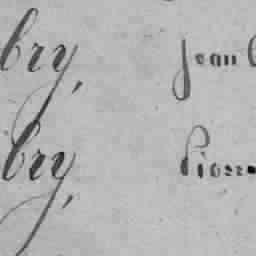 bry, Jean
bry, Pierre